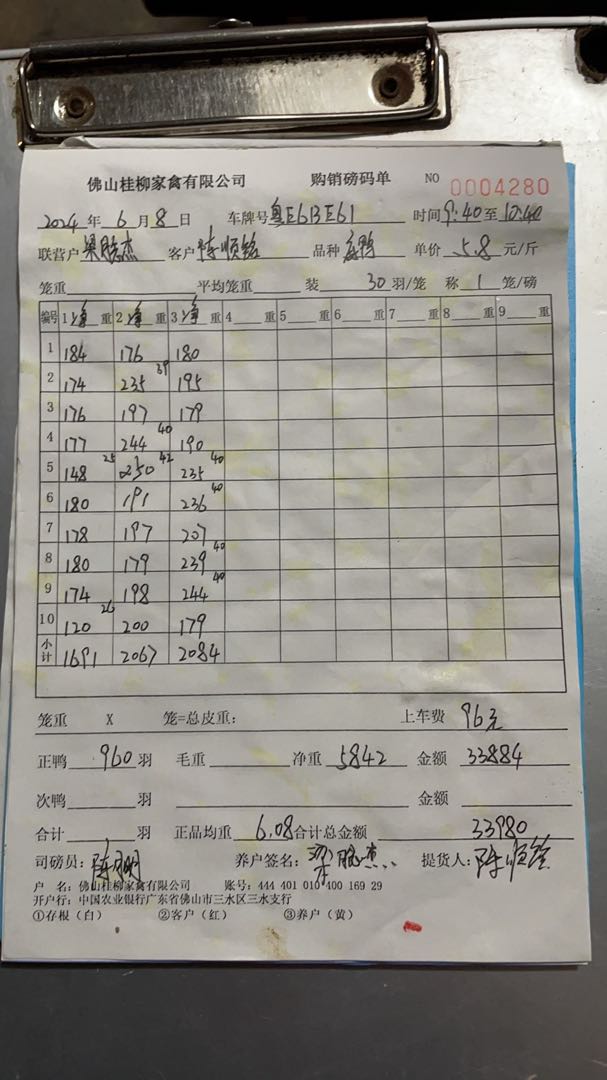 佛山桂柳家禽有限公司 购销磅码单 NO 0004280
2024 年 6 月 8 日 车牌号 粤E6BE61 时间 9:40 至 10:40
联营户 梁 杰 客户 陈顺铭 品种 鸭 单价 5.8 元/斤
笼重 平均笼重 装 30 羽/笼 称 1 笼/磅
编号 1 净 重 2 净 重 3 净 重 4 重 5 重 6 重 7 重 8 重 9 重
1 184 176 180
2 174 235 39 195
3 176 197 179
4 177 244 40 190
5 148 25 250 42 235 40
6 180 191 236 40
7 178 197 207
8 180 179 239 40
9 174 198 244 40
10 120 26 200 179
小计 1691 2067 2084
笼重 X 笼=总皮重: 上车费 96元
正鸭 960 羽 毛重 净重 5842 金额 33884
次鸭 羽 金额
合计 羽 正品均重 6.08 合计总金额 33980
司磅员: 陈 明 养户签名: 梁 杰 提货人: 陈顺铭
户 名: 佛山桂柳家禽有限公司 账号: 444 401 010 400 169 29
开户行: 中国农业银行广东省佛山市三水区三水支行
①存根（白） ②客户（红） ③养户（黄）